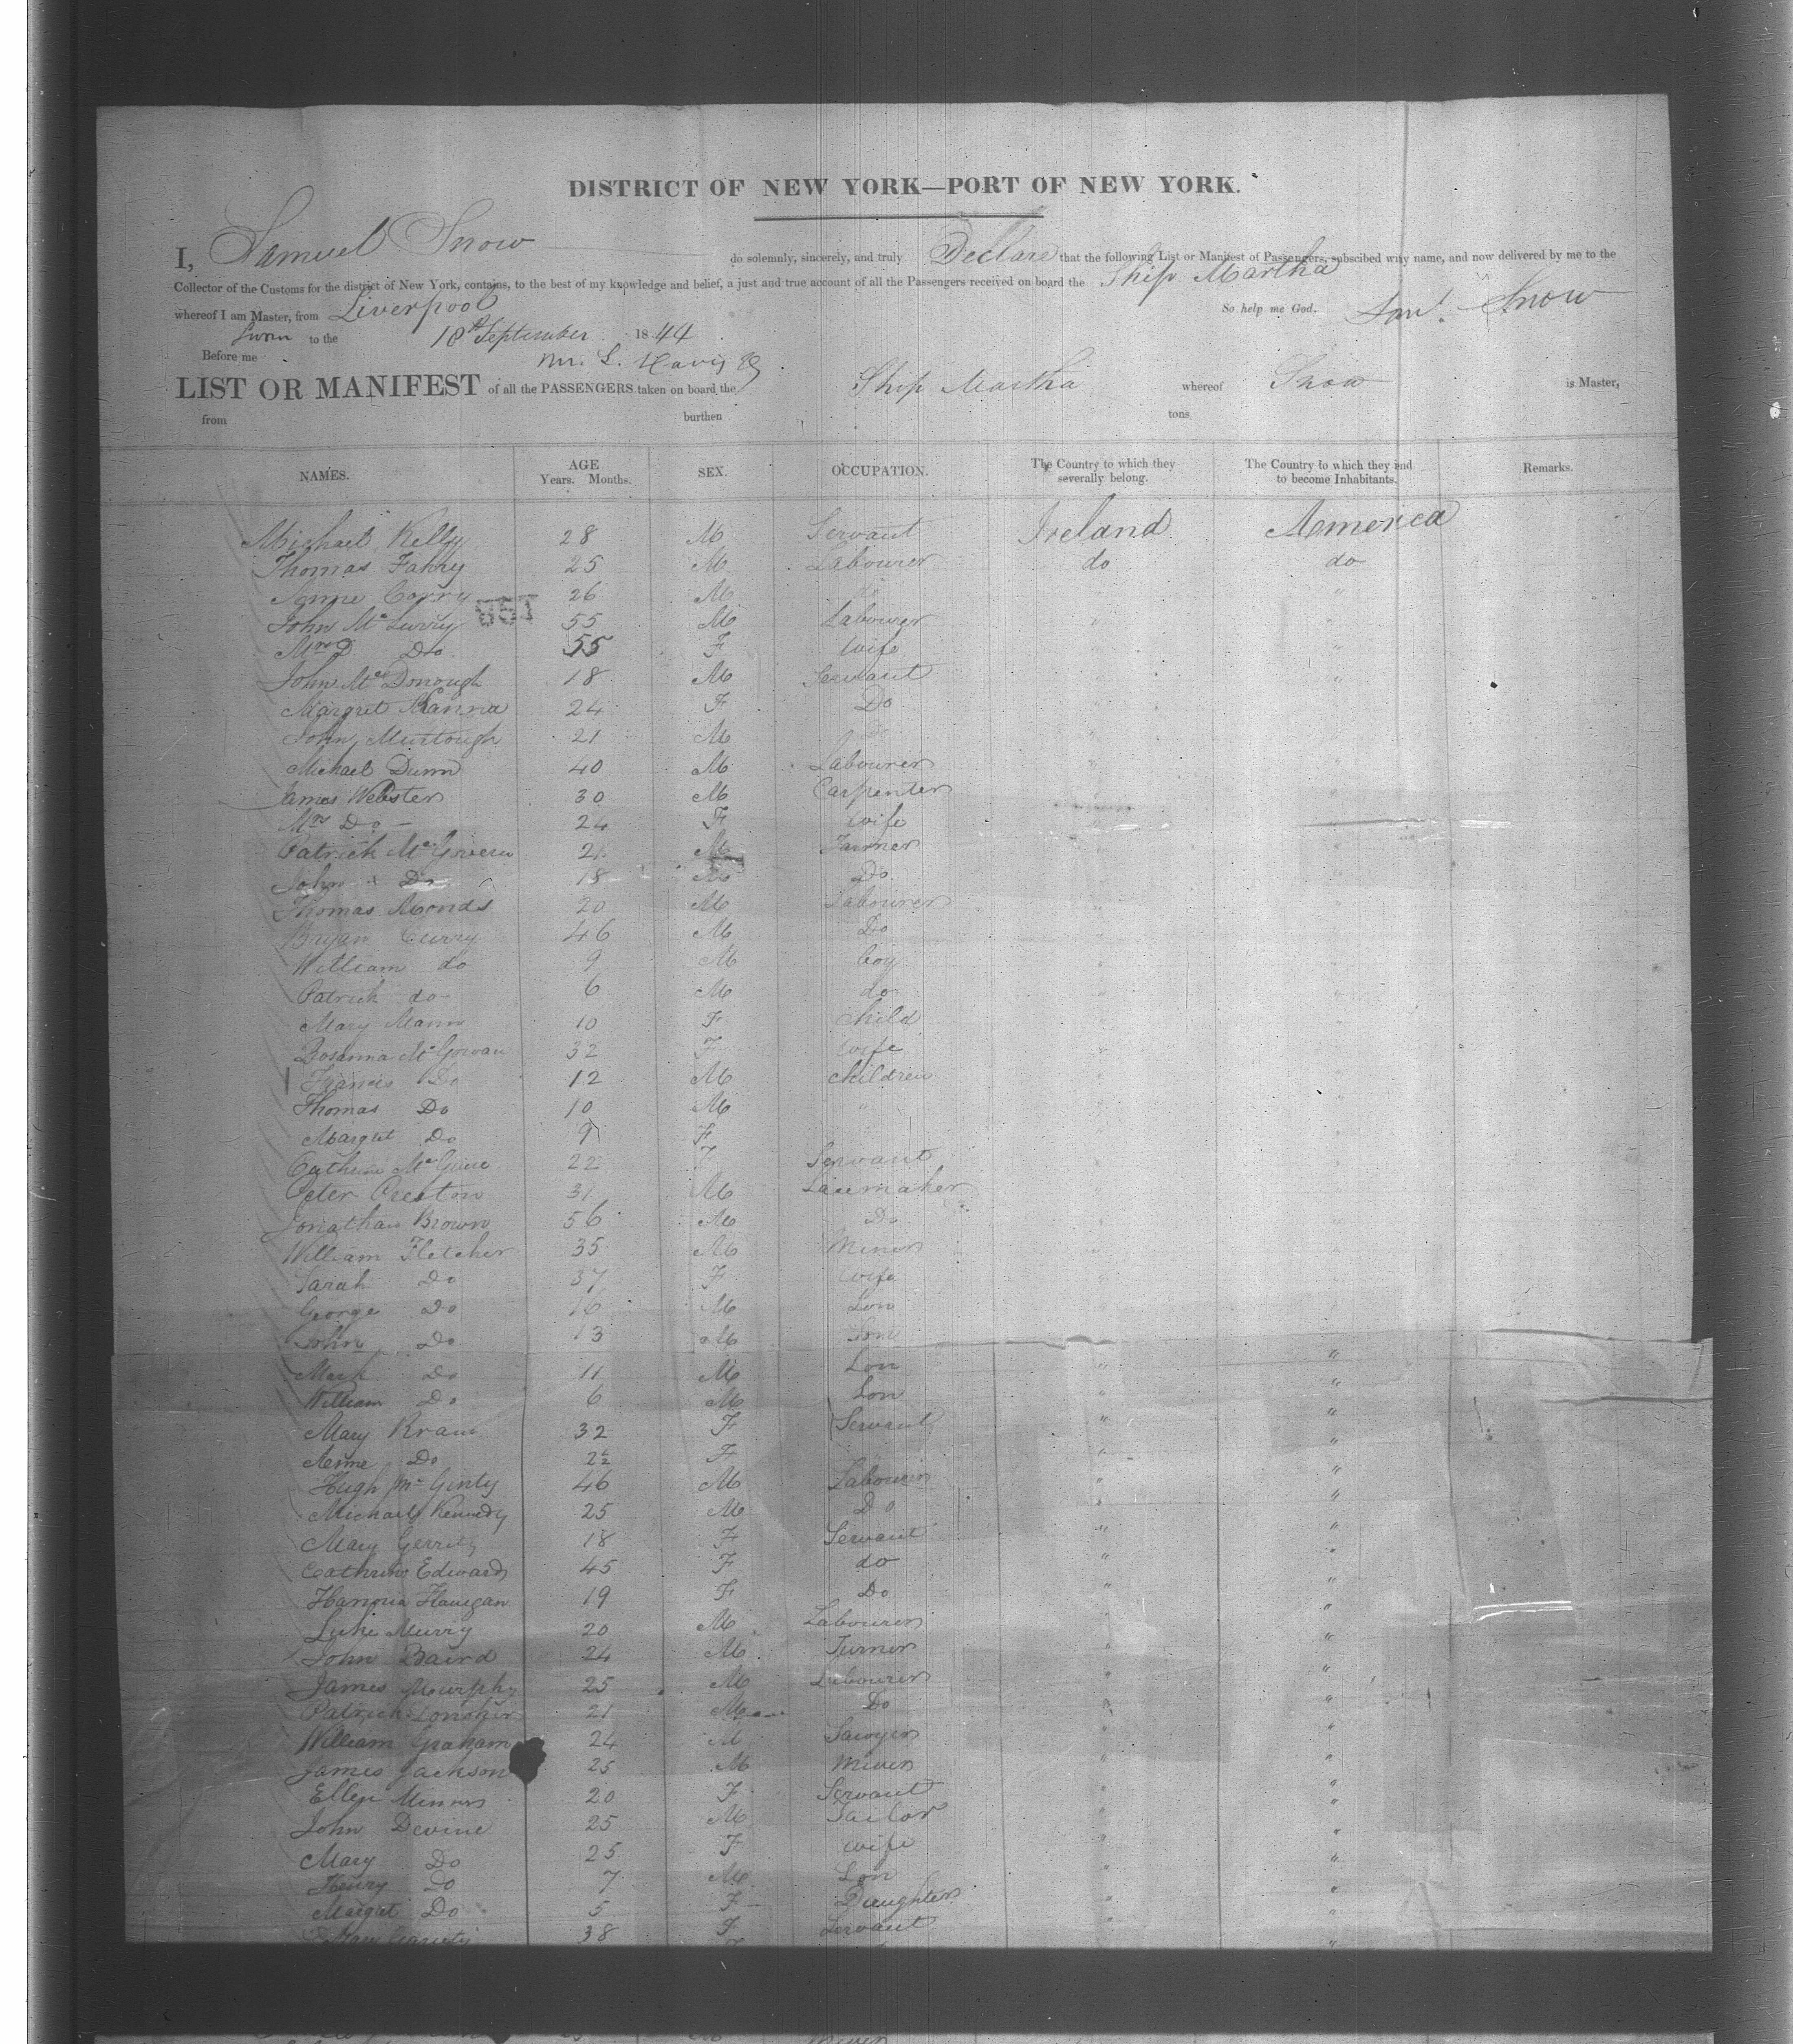 DISTRICT OF NEW YORK—PORT OF NEW YORK.
I, Samuel Snow do solemnly, sincerely, and truly Declare that the following List or Manifest of Passengers, subscibed with my name, and now delivered by me to the
Collector of the Customs for the district of New York, contains, to the best of my knowledge and belief, a just and true account of all the Passengers received on board the Ship Martha
whereof I am Master, from Liverpool So help me God. Saml. Snow
Sworn to the 18th September 1844
Before me
LIST OR MANIFEST of all the PASSENGERS taken on board the Ship Martha whereof Snow is Master,
from burthen tons
NAMES. AGE Years. Months. SEX. OCCUPATION. The Country to which they severally belong. The Country to which they end to become Inhabitants. Remarks.
Michael Kelly 28 M Servant Ireland America
Thomas Fahey 25 M Labourer do do
Corry 26 M " "
John McLurry 55 M Labourer " "
Mrs Do 55 F Wife " "
John McDonough 18 M Servant " "
Margret 24 F Do " "
John Murtough 21 M Do " "
Michael Dunn 40 M Labourer " "
James Webster 30 M Carpenter " "
Mrs Do 24 F Wife " "
Patrick McGovern 21 M Farmer " "
John Do 18 M Do " "
Thomas Monds 20 M Labourer " "
Bryan Curry 46 M Do " "
William do 9 M boy " "
Patrick do 6 M do " "
Mary Mann 10 F child " "
Rosanna McGowan 32 F Wife " "
Francis Do 12 M children " "
Thomas Do 10 M " " "
Margret Do 9 F " "
Cathrine McGuire 22 F Servant " "
Peter Preston 31 M Lacemaker " "
Jonathan Brown 56 M Do " "
William Fletcher 35 M Miner " "
Sarah Do 37 F Wife " "
George Do 16 M Son " "
John Do 13 M Son " "
Mark Do 11 M Son " "
William Do 6 M Son " "
Mary 32 F Servant " "
Anne Do 22 F " "
Hugh McGinty 46 M Labourer " "
Michael Kennedy 25 M Do " "
Mary 18 F Servant " "
Cathrine Edwards 45 F do " "
Hanora Flanigan 19 F Do " "
Luke Murry 20 M Labourer " "
John Baird 24 M Turner " "
James Murphy 25 M Labourer " "
Patrick 21 M Do " "
William Graham 24 M Sawyer " "
James Jackson 25 M Miner " "
Ellen 20 F Servant " "
John Devine 25 M Tailor " "
Mary Do 25 F Wife " "
Henry Do 7 M Son " "
Margret Do 5 F Daughter " "
Mary 38 F Servant " "